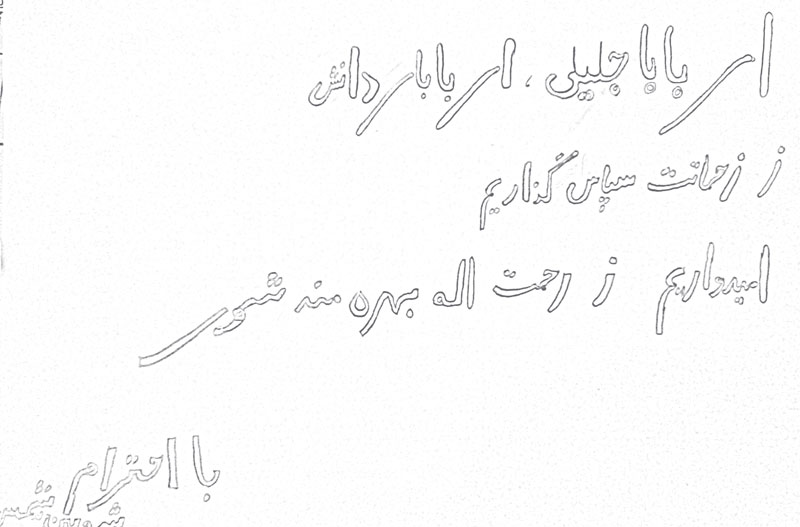 ار باباجلیلی ، ار بابار دانش
ز زحماتت سپاس گذاریم
امیدواریم ز رحمت اله بهره مند شوی
با احترام